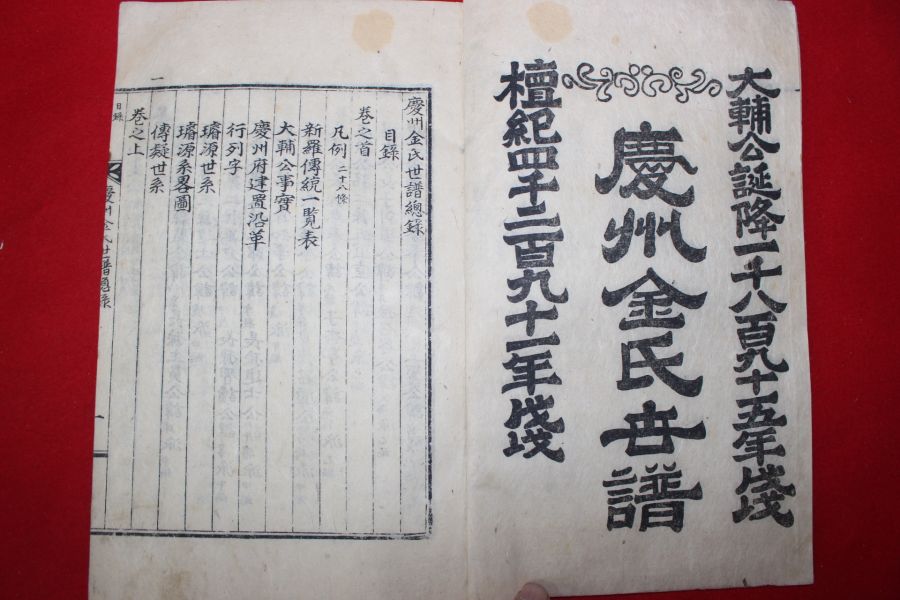 大輔公誕降一千八百九十五年戊戌
慶州金氏世譜
檀紀四千二百九十一年戊戌
慶州金氏世譜總錄
目錄
卷之首
凡例 二十八條
新羅傳統一覽表
大輔公事實
慶州府建置沿革
行列字
璿源世系
璿源系畧圖
傳疑世系
卷之上
目錄
一
慶州金氏世譜總錄
一